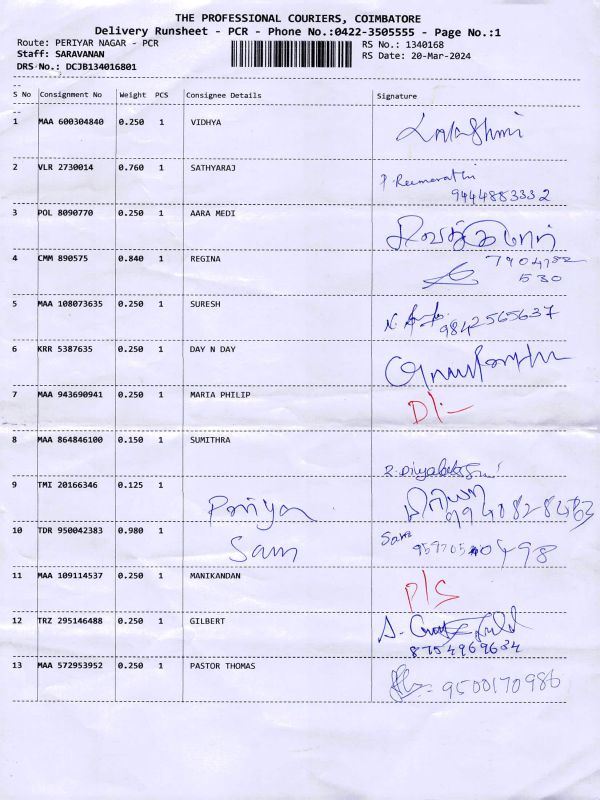 THE PROFESSIONAL COURIERS, COIMBATORE
Delivery Runsheet - PCR - Phone No.:0422-3505555 - Page No.:1
Route: PERIYAR NAGAR - PCR
RS No.: 1340168
Staff: SARAVANAN
RS Date: 20-Mar-2024
DRS No.: DCJB134016801
S No Consignment No Weight PCS Consignee Details Signature
1 MAA 600304840 0.250 1 VIDHYA
2 VLR 2730014 0.760 1 SATHYARAJ
9444883332
3 POL 8090770 0.250 1 AARA MEDI
4 CMM 890575 0.840 1 REGINA 7904782
530
5 MAA 108073635 0.250 1 SURESH
9842565637
6 KRR 5387635 0.250 1 DAY N DAY
7 MAA 943690941 0.250 1 MARIA PHILIP
D/-
8 MAA 864846100 0.150 1 SUMITHRA
9 TMI 20166346 0.125 1
Pariya
10 TDR 950042383 0.980 1 Sam
Sam
11 MAA 109114537 0.250 1 MANIKANDAN
P/S
12 TRZ 295146488 0.250 1 GILBERT
8754969634
13 MAA 572953952 0.250 1 PASTOR THOMAS
9500170986